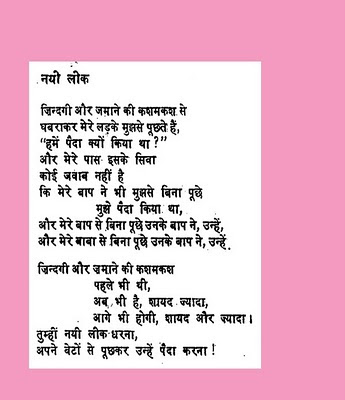 नयी लीक
ज़िन्दगी और ज़माने की कशमकश से
घबराकर मेरे लड़के मुझसे पूछते हैं,
“हमें पैदा क्यों किया था ?”
और मेरे पास इसके सिवा
कोई जवाब नहीं है
कि मेरे बाप ने भी मुझसे बिना पूछे
मुझे पैदा किया था,
और मेरे बाप से बिना पूछे उनके बाप ने, उन्हें,
और मेरे बाबा से बिना पूछे उनके बाप ने, उन्हें
ज़िन्दगी और ज़माने की कशमकश
पहले भी थी,
अब भी है, शायद ज्यादा,
आगे भी होगी, शायद और ज्यादा ।
तुम्हीं नयी लीक धरना,
अपने बेटों से पूछकर उन्हें पैदा करना !